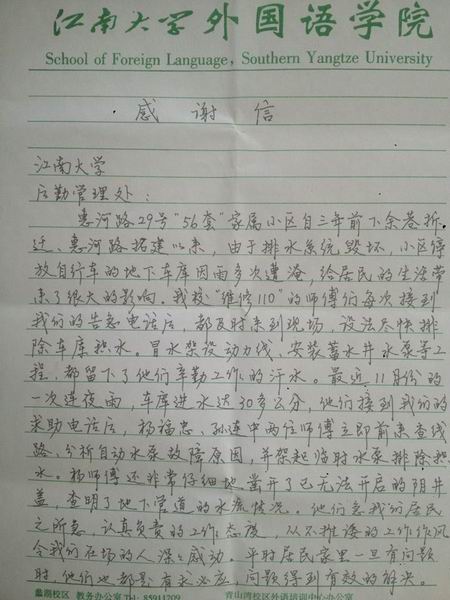 江南大学外国语学院
School of Foreign Language, Southern Yangtze University
感谢信
江南大学
后勤管理处：
惠河路29号“56套”家属小区自三年前下余巷拆
迁、惠河路拓建以来，由于排水系统毁坏，小区停
放自行车的地下车库因雨多次遭淹，给居民的生活带
来了很大的影响。我校“维修110”的师傅们每次接到
我们的告急电话后，都及时来到现场，设法尽快排
除车库积水。冒水架设动力线、安装蓄水井水泵等工
程，都留下了他们辛勤工作的汗水。最近11月份的
一次连夜雨，车库进水达30多公分，他们接到我们的
求助电话后，杨福忠、孙连中两位师傅立即前来查线
路、分析自动水泵故障原因，并架起临时水泵排除积
水。杨师傅还非常仔细地凿开了已无法开启的阴井
盖，查明了地下管道的水流情况。他们急我们居民
之所急，认真负责的工作态度，从不推诿的工作作风
令我们在场的人深深感动。平时居民家里一旦有问题
时，他们也都是有求必应，问题得到有效的解决。
蠡湖校区 教务办公室 Tel: 85911709 青山湾校区外语培训中心办公室